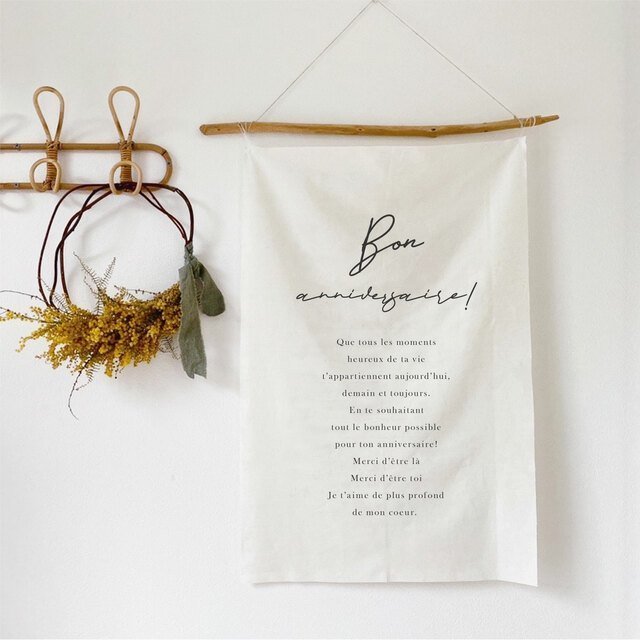 Bon
anniversaire!
Que tous les moments
heureux de ta vie
t'appartiennent aujourd'hui,
demain et toujours.
En te souhaitant
tout le bonheur possible
pour ton anniversaire!
Merci d'être là
Merci d'être toi
Je t'aime de plus profond
de mon coeur.